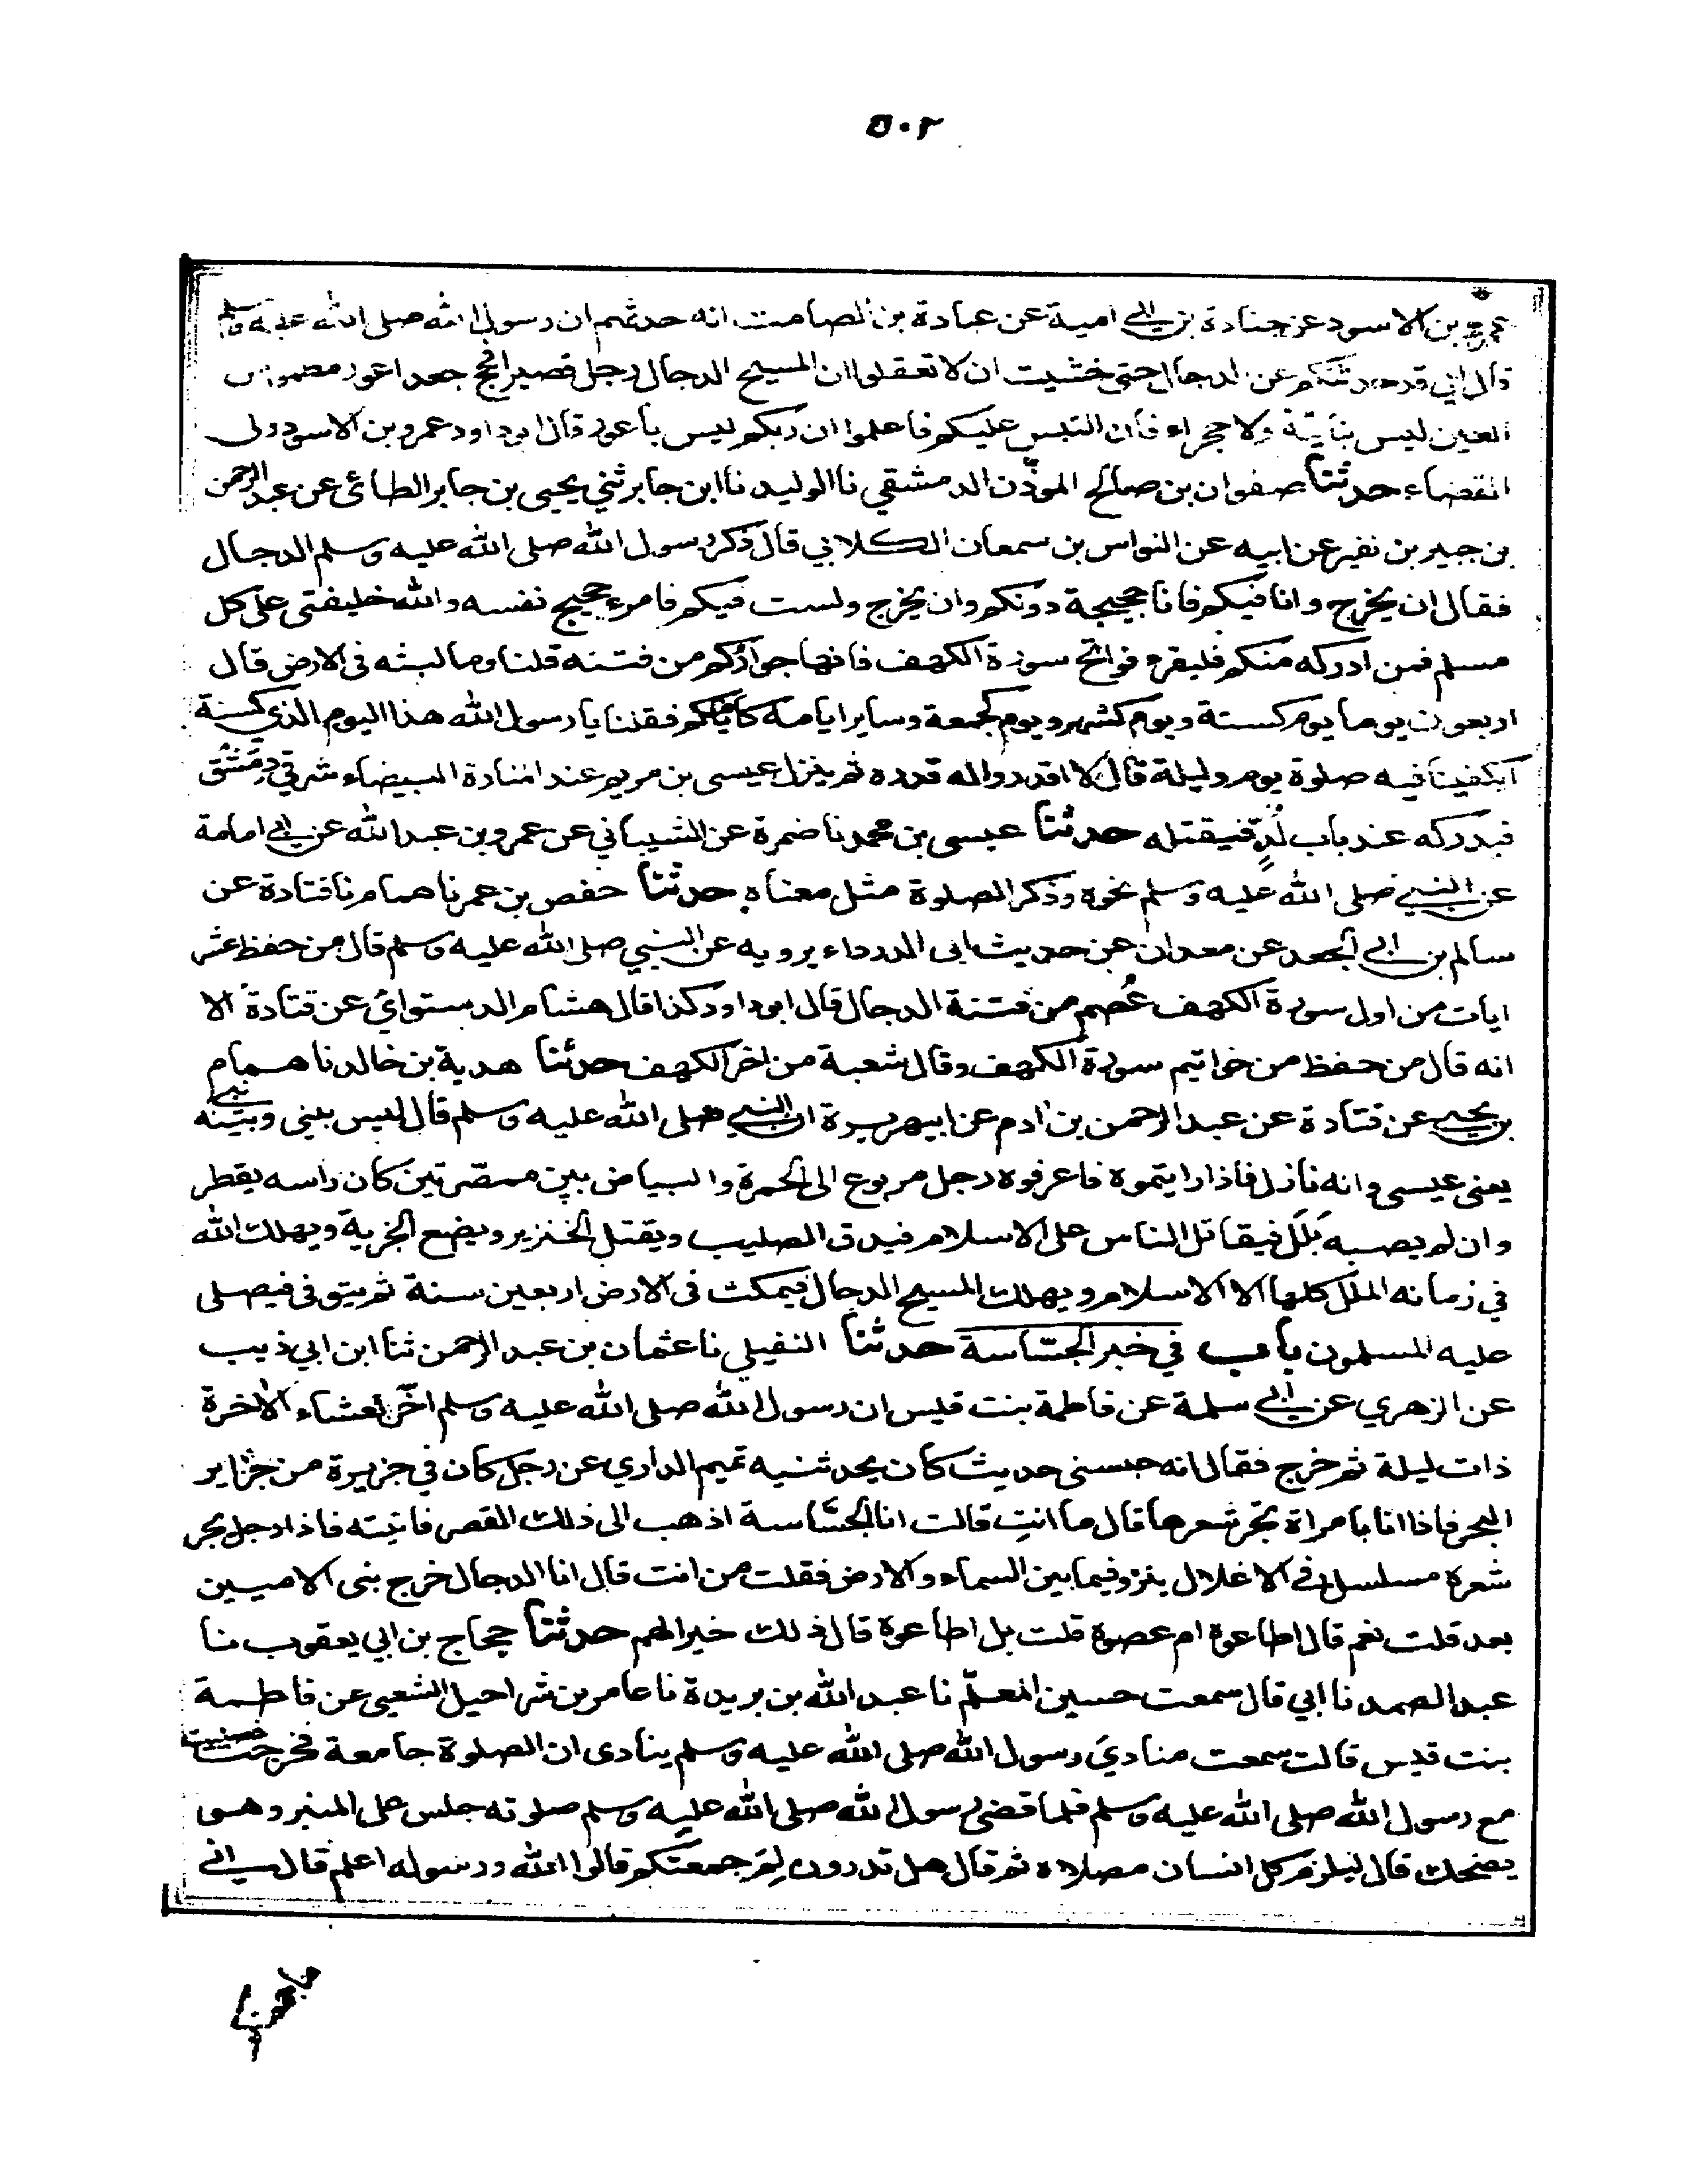 ٥٠٢
عمرو بن الاسود عن جنادة بن ابي امية عن عبادة بن الصامت انه حدثهم ان رسول الله صلى الله عليه وسلم
قال اني قد حدثتكم عن الدجال حتى خشيت ان لا تعقلوا ان المسيح الدجال رجل قصير افحج جعد اعور مطموس
العين ليس بناتئة ولا حجراء فان التبس عليكم فاعلموا ان ربكم ليس باعور قال ابو داود عمرو بن الاسود ولى
القضاء حدثنا صفوان بن صالح الموذّن الدمشقي نا الوليد نا ابن جابر ثني يحيى بن جابر الطائى عن عبد الرحمن
بن جبير بن نفير عن ابيه عن النواس بن سمعان الكلابي قال ذكر رسول الله صلى الله عليه وسلم الدجال
فقال ان يخرج وانا فيكم فانا حجيجه دونكم وان يخرج ولست فيكم فامرء حجيج نفسه والله خليفتى على كل
مسلم فمن ادركه منكم فليقرء فواتح سورة الكهف فانها جواركم من فتنته قلنا وما لبثه فى الارض قال
اربعون يوما يوم كسنة ويوم كشهر ويوم كجمعة وساير ايامه كايامكم فقلنا يا رسول الله هذا اليوم الذي كسنة
اتكفينا فيه صلوة يوم وليلة قال لا اقدروا له قدره ثم ينزل عيسى بن مريم عند المنارة البيضاء شرقي دمشق
فيدركه عند باب لُدٍّ فيقتله حدثنا عيسى بن محمد نا ضمرة عن الشيباني عن عمرو بن عبد الله عن ابي امامة
عن النبي صلى الله عليه وسلم نحوه وذكر الصلوة مثل معناه حدثنا حفص بن عمر نا همام نا قتادة عن
سالم بن ابي الجعد عن معدان عن حديث ابى الدرداء يرويه عن النبي صلى الله عليه وسلم قال من حفظ عشر
ايات من اول سورة الكهف عُصم من فتنة الدجال قال ابو داود كذا قال هشام الدستوائي عن قتادة الا
انه قال من حفظ من خواتيم سورة الكهف وقال شعبة من اخر الكهف حدثنا هدبة بن خالد نا همام
بن يحيى عن قتادة عن عبد الرحمن بن ادم عن ابيهريرة ان النبي صلى الله عليه وسلم قال ليس بيني وبينه نبي
يعنى عيسى وانه نازل فاذا رايتموه فاعرفوه رجل مربوع الى الحمرة والبياض بين ممصّرتين كان راسه يقطر
وان لم يصبه بَلَل فيقاتل الناس على الاسلام فيدق الصليب ويقتل الخنزير ويضع الجزية ويهلك الله
في زمانه الملل كلها الا الاسلام ويهلك المسيح الدجال فيمكث فى الارض اربعين سنة ثم يتوفى فيصلى
عليه المسلمون باب في خبر الجسّاسة حدثنا النفيلي نا عثمان بن عبد الرحمن ثنا ابن ابي ذيب
عن الزهري عن ابي سلمة عن فاطمة بنت قيس ان رسول الله صلى الله عليه وسلم اخّر العشاء الاخرة
ذات ليلة ثم خرج فقال انه حبسنى حديث كان يحدثنيه تميم الداري عن رجل كان في جزيرة من جزاير
البحر فاذا انا بامراة تجر شعرها قال ما انتِ قالت انا الجسّاسة اذهب الى ذلك القصر فاتيته فاذا رجل يجر
شعره مسلسل في الاغلال ينزو فيما بين السماء والارض فقلت من انت قال انا الدجال خرج بنى الاميين
بعد قلت نعم قال اطاعوه ام عصوه قلت بل اطاعوه قال ذلك خير الهم حدثنا حجاج بن ابي يعقوب نا
عبد الصمد نا ابي قال سمعت حسين المعلّم نا عبد الله بن بريدة نا عامر بن شراحيل الشعبي عن فاطمة
بنت قيس قالت سمعت منادي رسول الله صلى الله عليه وسلم ينادى ان الصلوة جامعة فخرجت فصليت
مع رسول الله صلى الله عليه وسلم فلما قضى رسول الله صلى الله عليه وسلم صلوته جلس على المنبر وهو
يضحك قال ليلزم كل انسان مصلاه ثم قال هل تدرون لِمَ جمعتكم قالوا الله ورسوله اعلم قال اني